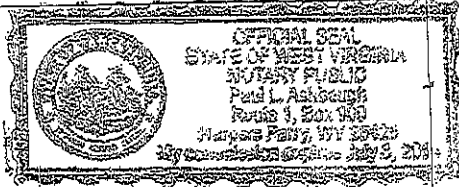 OFFICIAL SEAL
STATE OF WEST VIRGINIA
NOTARY PUBLIC
Paul L. Ashbaugh
Route 1, Box
Harpers Ferry, WV 25425
My commission expires July 8,